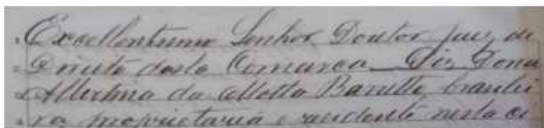 Excellentissimo Senhor Doutor Juiz de
Direito desta Comarca Diz Dona
da Motta Barretto, brasilei
ra, proprietaria e residente nesta ci